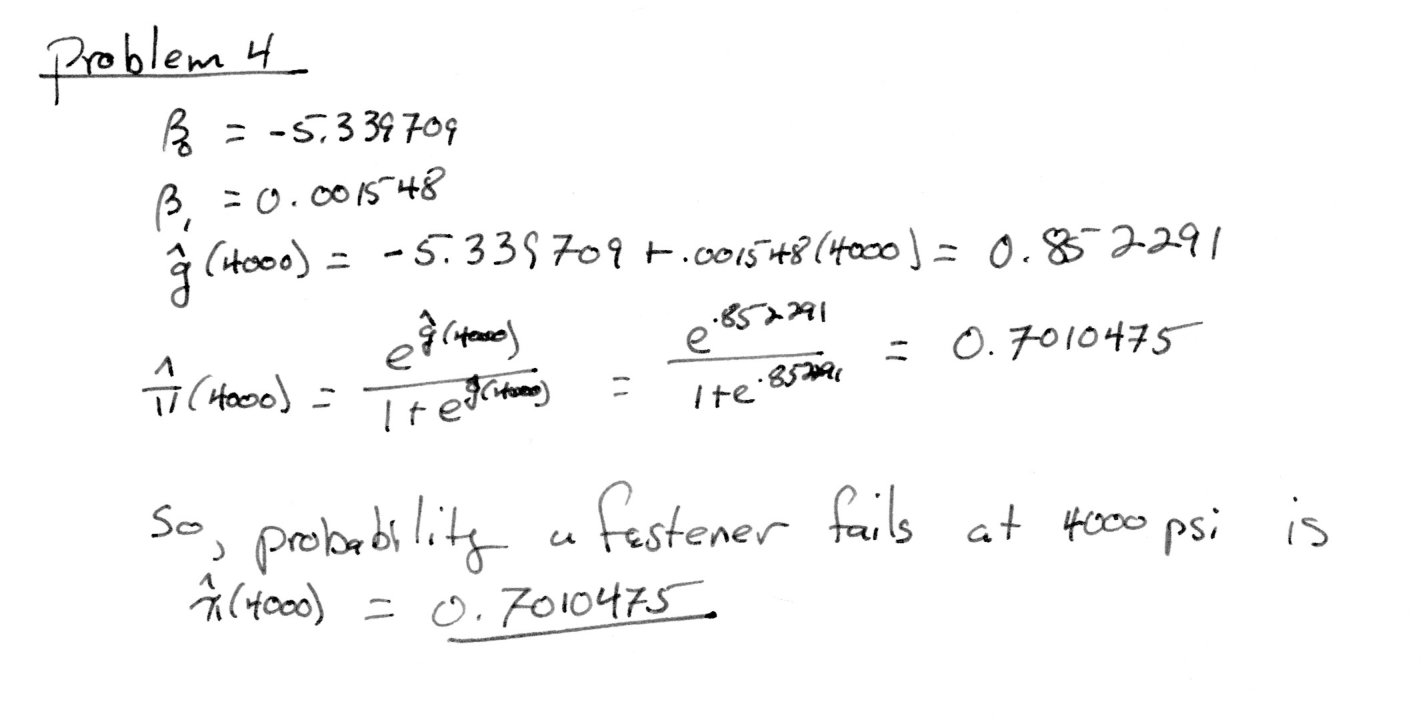 Problem 4
β₀ = -5.339709
β₁ = 0.001548
ĝ(4000) = -5.339709 + .001548(4000) = 0.852291
π̂(4000) = e^ĝ(4000) / 1+e^ĝ(4000) = e^.852291 / 1+e^.852291 = 0.7010475
So, probability a fastener fails at 4000 psi is
π̂(4000) = 0.7010475.